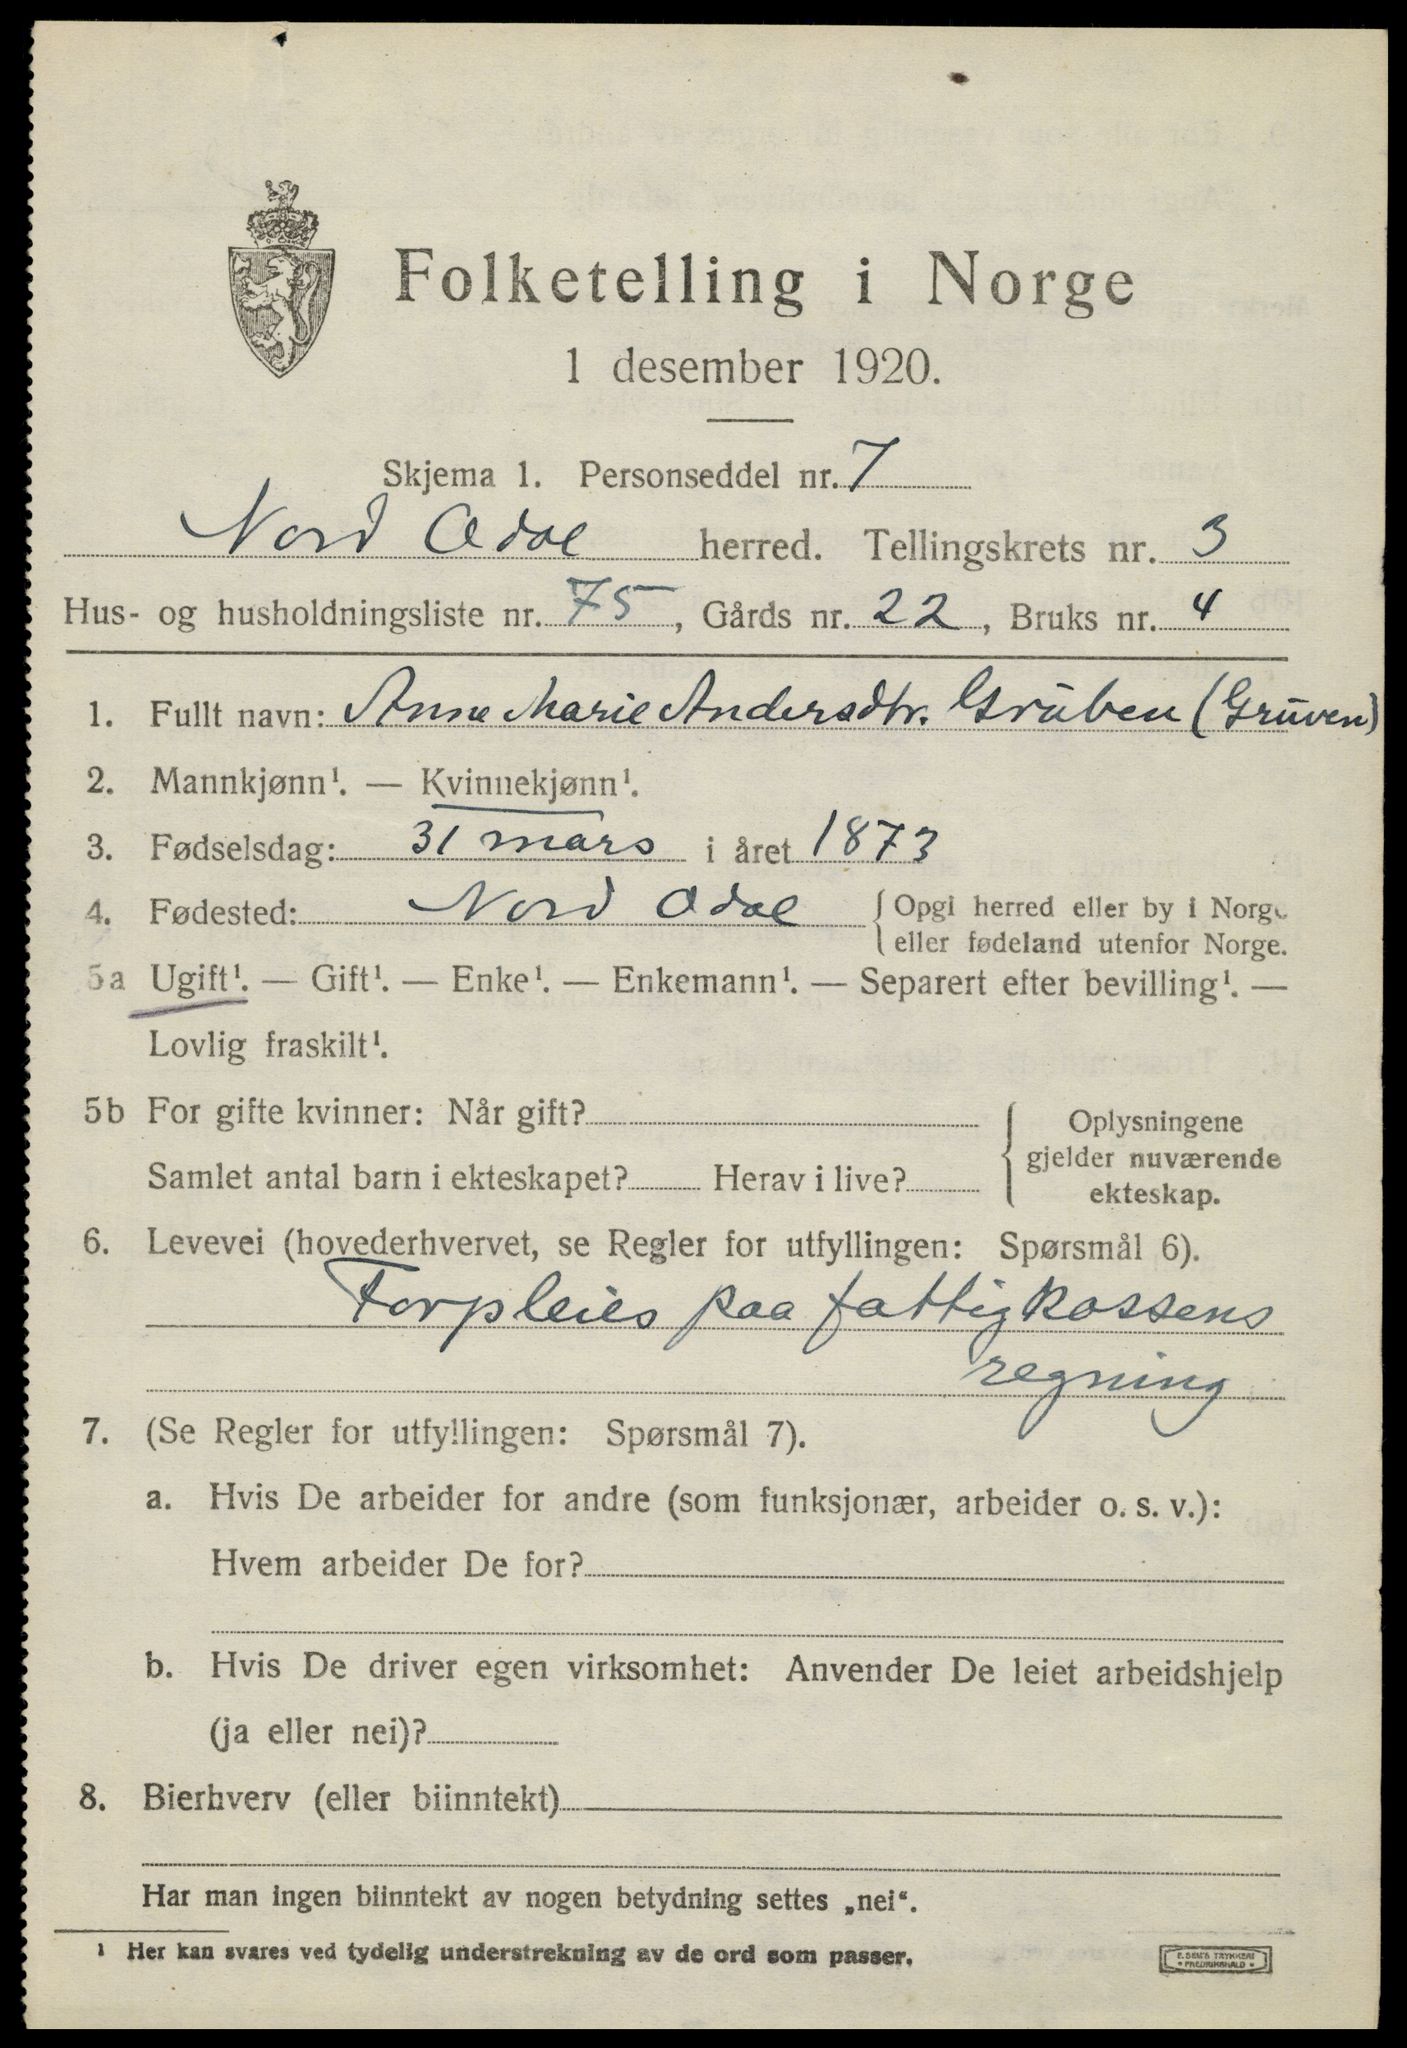 Folketelling i Norge
1 desember 1920.
Skjema 1. Personseddel nr. 7
Nord Odal herred. Tellingskrets nr. 3
Hus- og husholdningsliste nr. 75, Gårds nr. 22, Bruks nr. 4
1. Fullt navn: Anne Marie Andersdtr. Gruben (Gruven)
2. Mannkjønn¹. — Kvinnekjønn¹.
3. Fødselsdag: 31 mars i året 1873
4. Fødested: Nord Odal { Opgi herred eller by i Norge
eller fødeland utenfor Norge.
5a Ugift¹. — Gift¹. — Enke¹. — Enkemann¹. — Separert efter bevilling¹. —
Lovlig fraskilt¹.
5b For gifte kvinner: Når gift?
Samlet antal barn i ekteskapet? Herav i live?
{ Oplysningene
gjelder nuværende
ekteskap.
6. Levevei (hovederhvervet, se Regler for utfyllingen: Spørsmål 6).
Forpleies paa fattigkassens
regning
7. (Se Regler for utfyllingen: Spørsmål 7).
a. Hvis De arbeider for andre (som funksjonær, arbeider o. s. v.):
Hvem arbeider De for?
b. Hvis De driver egen virksomhet: Anvender De leiet arbeidshjelp
(ja eller nei)?
8. Bierhverv (eller biinntekt)
Har man ingen biinntekt av nogen betydning settes „nei“.
¹ Her kan svares ved tydelig understrekning av de ord som passer.
E. SEM'S TRYKKERI
• FREDRIKSHALD •